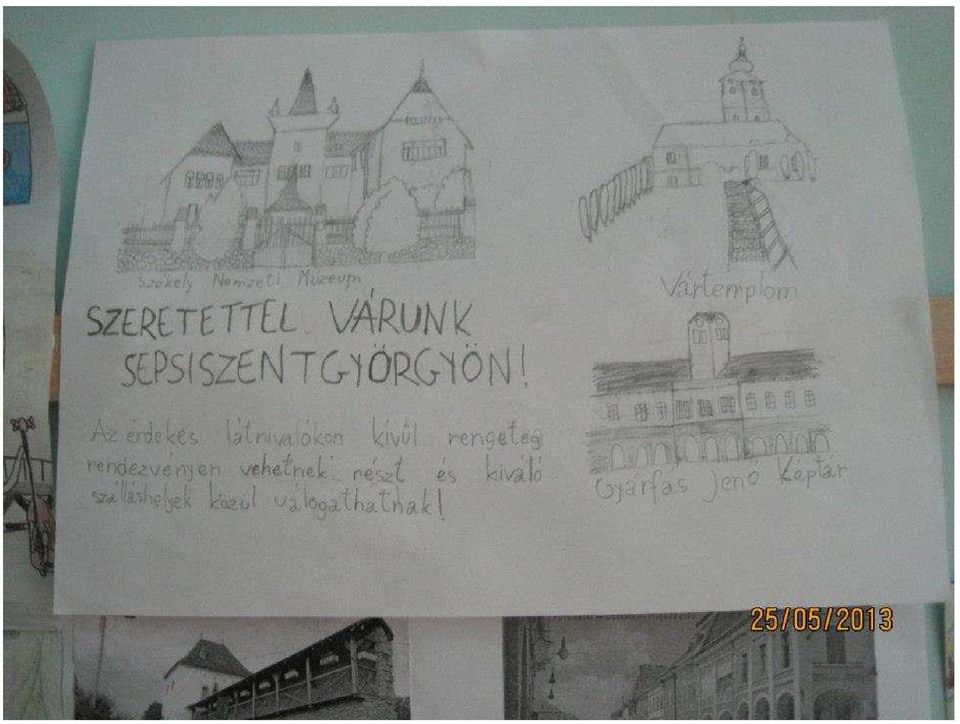 Székely Nemzeti Múzeum
Vártemplom
SZERETETTEL VÁRUNK
SEPSISZENTGYÖRGYÖN!
Az érdekes látnivalókon kívül rengeteg
rendezvényen vehetnek részt és kiváló
szálláshelyek közül válogathatnak!
Gyárfás Jenő Képtár
25/05/2013